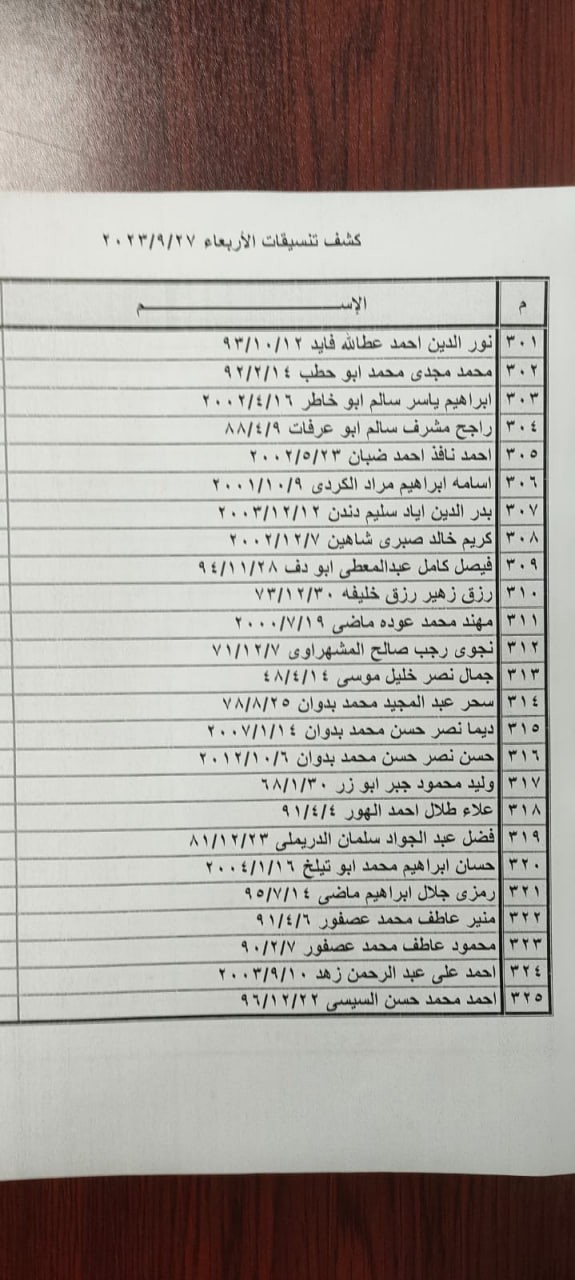 كشف تنسيقات الأربعاء ٢٠٢٣/٩/٢٧
م الإســـــم
٣٠١ نور الدين احمد عطالله فايد ٩٣/١٠/١٢
٣٠٢ محمد مجدى محمد ابو حطب ٩٢/٢/١٤
٣٠٣ ابراهيم ياسر سالم ابو خاطر ٢٠٠٢/٤/١٦
٣٠٤ راجح مشرف سالم ابو عرفات ٨٨/٤/٩
٣٠٥ احمد نافذ احمد ضبان ٢٠٠٢/٥/٢٣
٣٠٦ اسامه ابراهيم مراد الكردى ٢٠٠١/١٠/٩
٣٠٧ بدر الدين اياد سليم دندن ٢٠٠٣/١٢/١٢
٣٠٨ كريم خالد صبرى شاهين ٢٠٠٢/١٢/٧
٣٠٩ فيصل كامل عبدالمعطى ابو دف ٩٤/١١/٢٨
٣١٠ رزق زهير رزق خليفه ٧٣/١٢/٣٠
٣١١ مهند محمد عوده ماضى ٢٠٠٠/٧/١٩
٣١٢ نجوى رجب صالح المشهراوى ٧١/١٢/٧
٣١٣ جمال نصر خليل موسى ٤٨/٤/١٤
٣١٤ سحر عبد المجيد محمد بدوان ٧٨/٨/٢٥
٣١٥ ديما نصر حسن محمد بدوان ٢٠٠٧/١/١٤
٣١٦ حسن نصر حسن محمد بدوان ٢٠١٢/١٠/٦
٣١٧ وليد محمود جبر ابو زر ٦٨/١/٣٠
٣١٨ علاء طلال احمد الهور ٩١/٤/٤
٣١٩ فضل عبد الجواد سلمان الدريملى ٨١/١٢/٢٣
٣٢٠ حسان ابراهيم محمد ابو تيلخ ٢٠٠٤/١/١٦
٣٢١ رمزى جلال ابراهيم ماضى ٩٥/٧/١٤
٣٢٢ منير عاطف محمد عصفور ٩١/٤/٦
٣٢٣ محمود عاطف محمد عصفور ٩٠/٢/٧
٣٢٤ احمد على عبد الرحمن زهد ٢٠٠٣/٩/١٠
٣٢٥ احمد محمد حسن السيسى ٩٦/١٢/٢٢